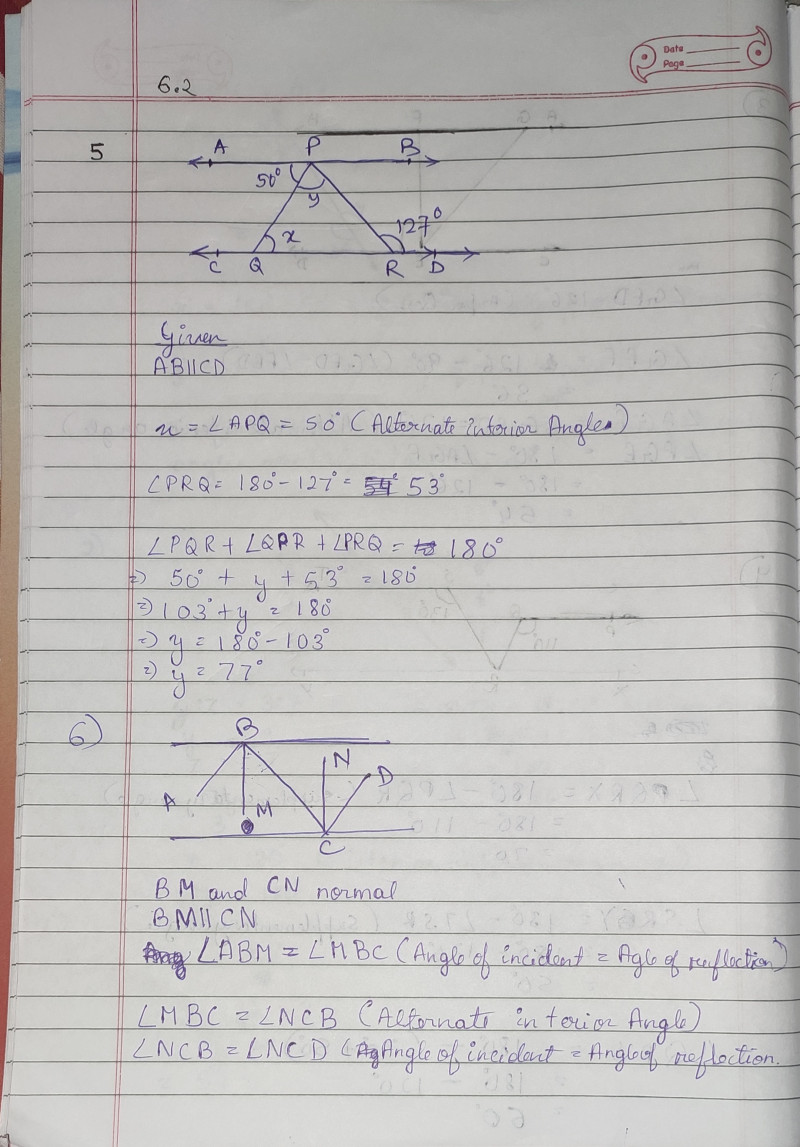 Date
Page
6.2
5
A P B
50°
y
x 127°
C Q R D
Given
AB||CD
x = ∠APQ = 50° (Alternate interior Angles)
∠PRQ = 180° - 127° = 53°
∠PQR + ∠QPR + ∠PRQ = 180°
=) 50° + y + 53° = 180°
=) 103° + y = 180°
=) y = 180° - 103°
=) y = 77°
6)
B
N
D
A
M
C
BM and CN normal
BM||CN
∠ABM = ∠MBC (Angle of incident = Agle of reflection)
∠MBC = ∠NCB (Alternate interior Angle)
∠NCB = ∠NCD (Angle of incident = Angle of reflection.